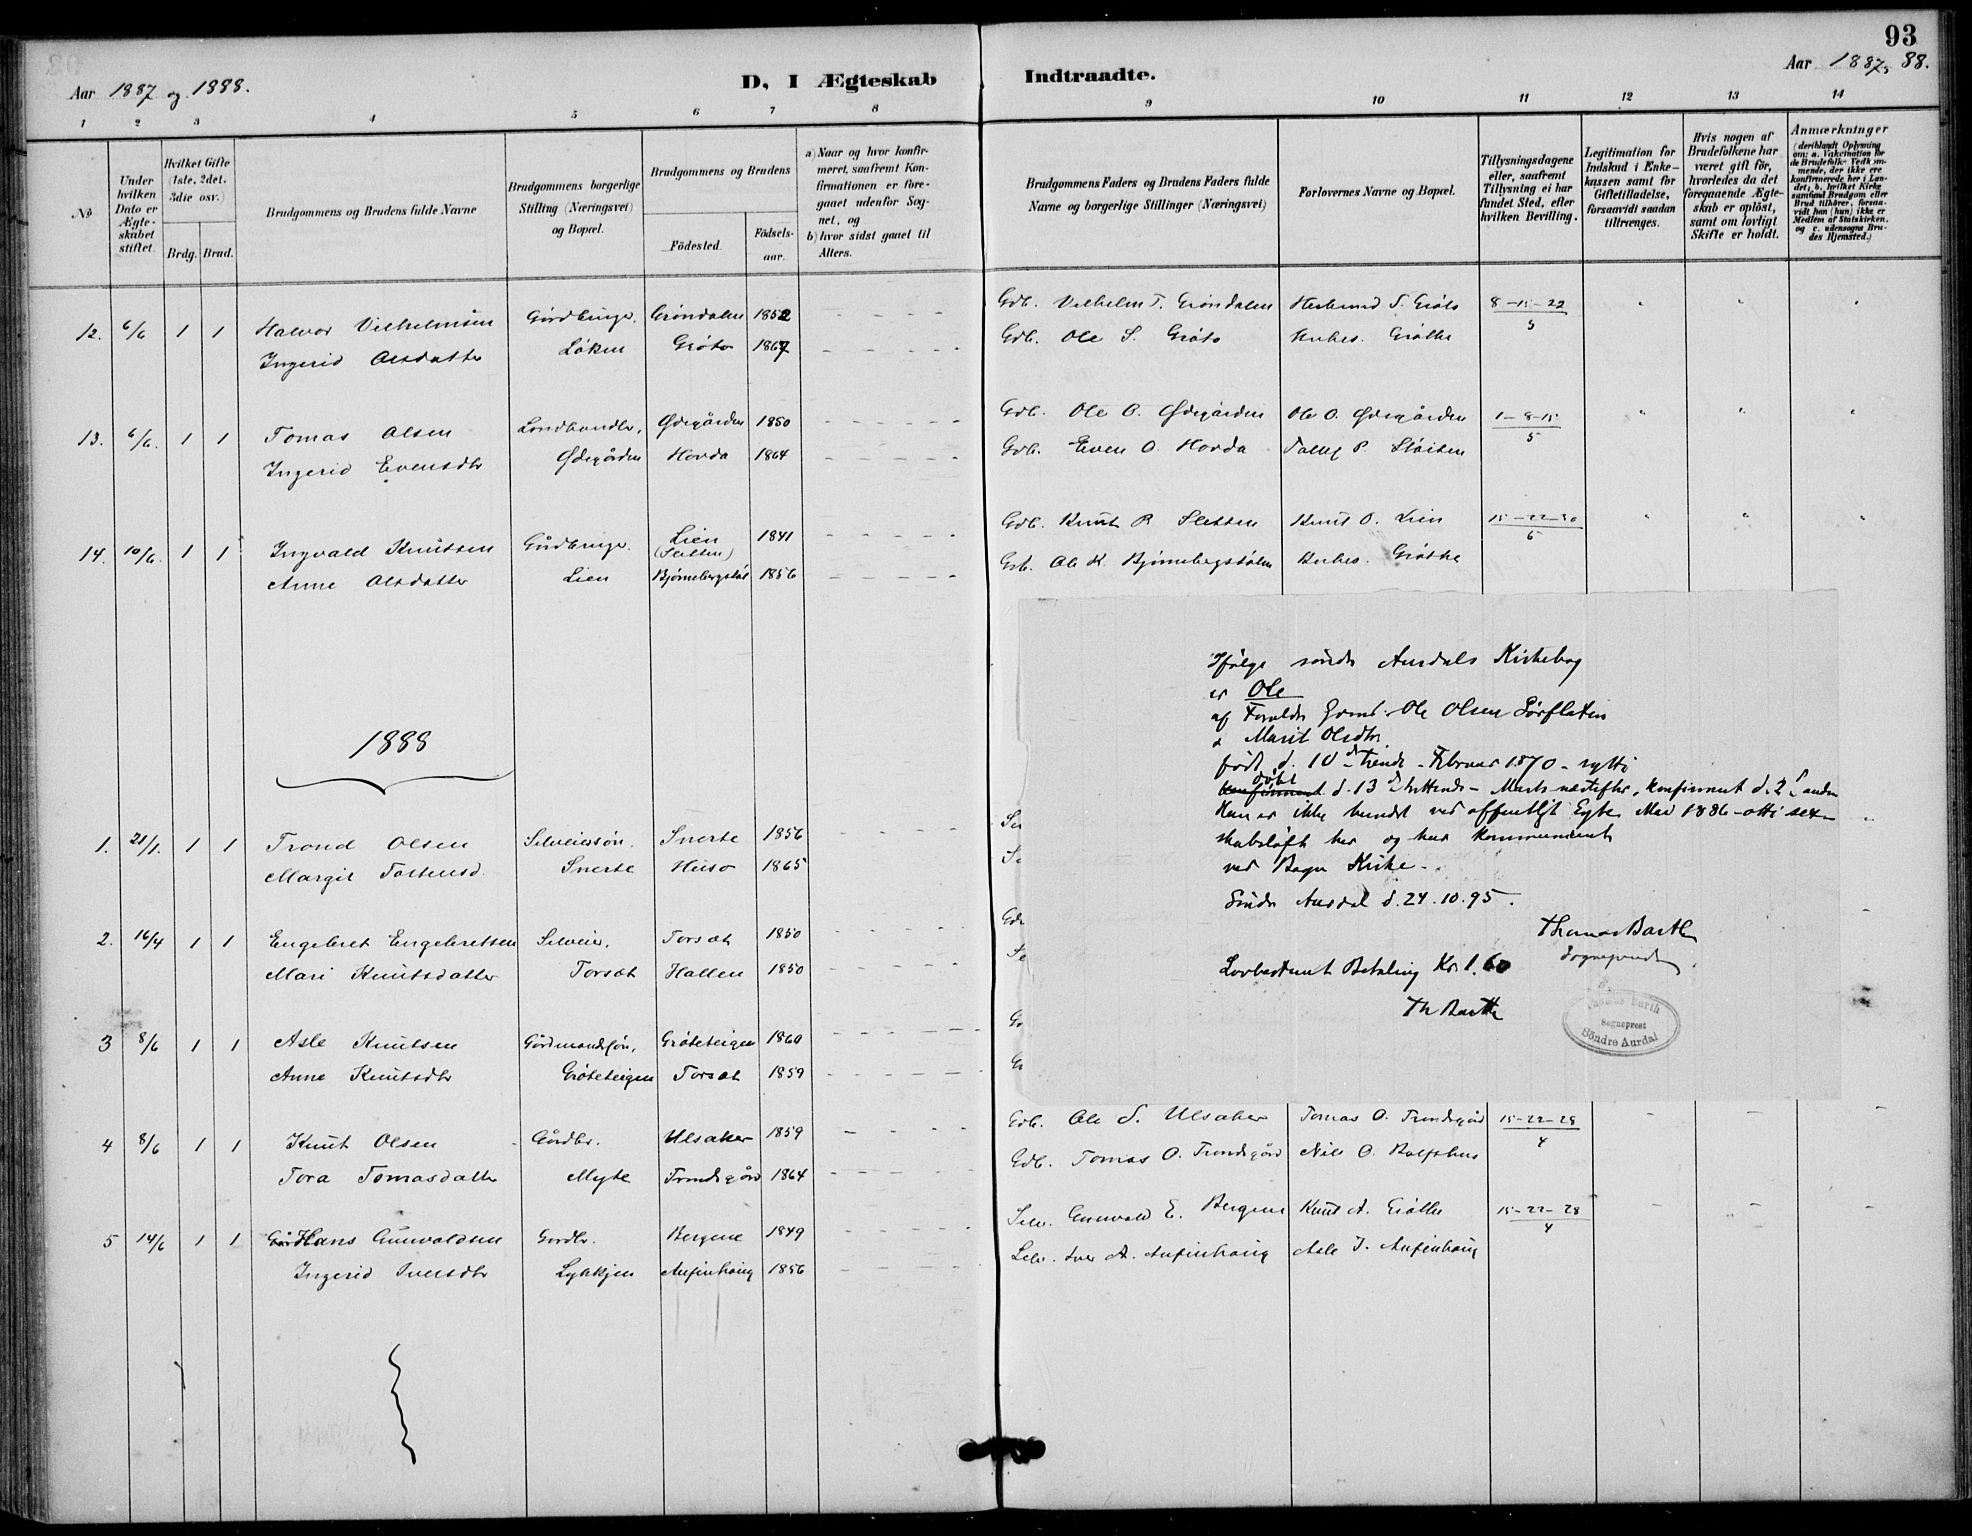 93
Aar 1887 og 1888.
D, I Ægteskab
Indtraadte.
Aar 1887, 88.
1 2 3 4 5 6 7 8
9 10 11 12 13 14
No
Under hvilken Dato er Ægte-skabet stiftet.
Hvilket Gifte (1ste, 2det, 3die osv.)
Brdg. Brud.
Brudgommens og Brudens fulde Navne
Brudgommens borgerlige Stilling (Næringsvei) og Bopæl.
Brudgommens og Brudens
Födested.
Födsels-aar.
a) Naar og hvor konfir-meret, saafremt Kon-firmationen er fore-gaaet udenfor Sog-net, og
b) hvor sidst gaaet til Alters.
Brudgommens Faders og Brudens Faders fulde Navne og borgerlige Stillinger (Næringsvei)
Forlovernes Navne og Bopæl.
Tillysningsdagene eller, saafremt Tillysning ei har fundet Sted, efter hvilken Bevilling.
Legitimation for Indskud i Enke-kassen samt for Giftetilladelse, forsaavidt saadan tiltrænges.
Hvis nogen af Brudefolkene har været gift för, hvorledes da det foregaaende Ægte-skab er oplöst, samt om lovligt Skifte er holdt.
Anmærkninger
(deriblandt Oplysning om: a. Vakcination for de Brudefolks Vedkom-mende, der ikke ere konfirmerede her i Lan-det; b. hvilket Kirke-samfund Brudgom eller Brud tilhører, forsaa-vidt han (hun) ikke er Medlem af Statskirken. og c. udensogns Bru-des Hjemsted.)
12. 6/6 1 1 Halvor Vilhelmsen Gårdbruger. Gröndalen 1852 Gdb. Vilhelm T. Gröndalen S. Gröto 8-15-22/5
Ingerid Olsdatter Löken Gröto 1867 Gdb. Ole S. Gröto Gröthe
13. 6/6. 1 1 Tomas Olsen Landhandler, Ødegården 1850 Gdb. Ole O. Ødegården Ole O. Ødegården 1-8-15/5
Ingerid Evensdtr Ødegården Hovda 1864 Gdb. Even O. Hovda P. Slåiten
14. 10/6. 1 1 Ingvald Knutsen Gårdbruger. Lien 1841 Gdb. Knut R. Sletten Knut O. Lien 15-22-30/5
Anne Olsdatter Lien Bjørnebergstöl 1856 Ole K. Bjørnebergstölen Gröthe
1888
1. 21/1. 1 1 Trond Olsen Selveiersön. Snerte 1856
Margit Tostensd. Snerte Huso 1865
2. 16/4 1 1 Engebret Engebretsen Selveier. Torsæt 1850
Mari Knutsdatter Torsæt Hallen 1850
3 8/6 1 1 Asle Knutsen Gårdmandssön, Gröteteigen 1860
Anne Knutsdtr Gröteteigen Torsæt 1859
4 8/6 1 1 Knut Olsen Gårdbr. Ulsaker 1859 Gdb. Ole S. Ulsaker Tomas O. Trondsgård 15-22-28/4
Tora Tomasdatter Myte Trondsgård 1864 Gdb. Tomas O. Trondsgård Nils O. Rolfshus
5 14/6 1 1 Hans Gunvaldsen Gardbr. Bergene 1849 Selv. Gunvald E. Bergene Knut A. Gröthe 15-22-28/4
Ingerid Iversdtr Lykkjen Anfinhaug 1856 Selv. Iver A. Anfinhaug Asle I. Anfinhaug
Ifølge søndre Aurdals Kirkebog
er Ole
af Forældre Ole Olsen Sørflaten
& Marit Olsdtr.
født d. 10de tiende Februar 1870 - sytti
konfirmeret døbt d. 13de trettende - Marts næstefter, konfirmeret d. 2 anden
Han er ikke bundet ved offentligt Egte- Mai 1886 - otti sex -
skabsløft her og har kommuniceret
ved Bagn Kirke -
Søndre Aurdal d. 24.10.95.
Thomas Barth
Sogneprest
Lovbestemt Betaling Kr. 1.60
Th Barth
Thomas Barth
Sogneprest
Söndre Aurdal